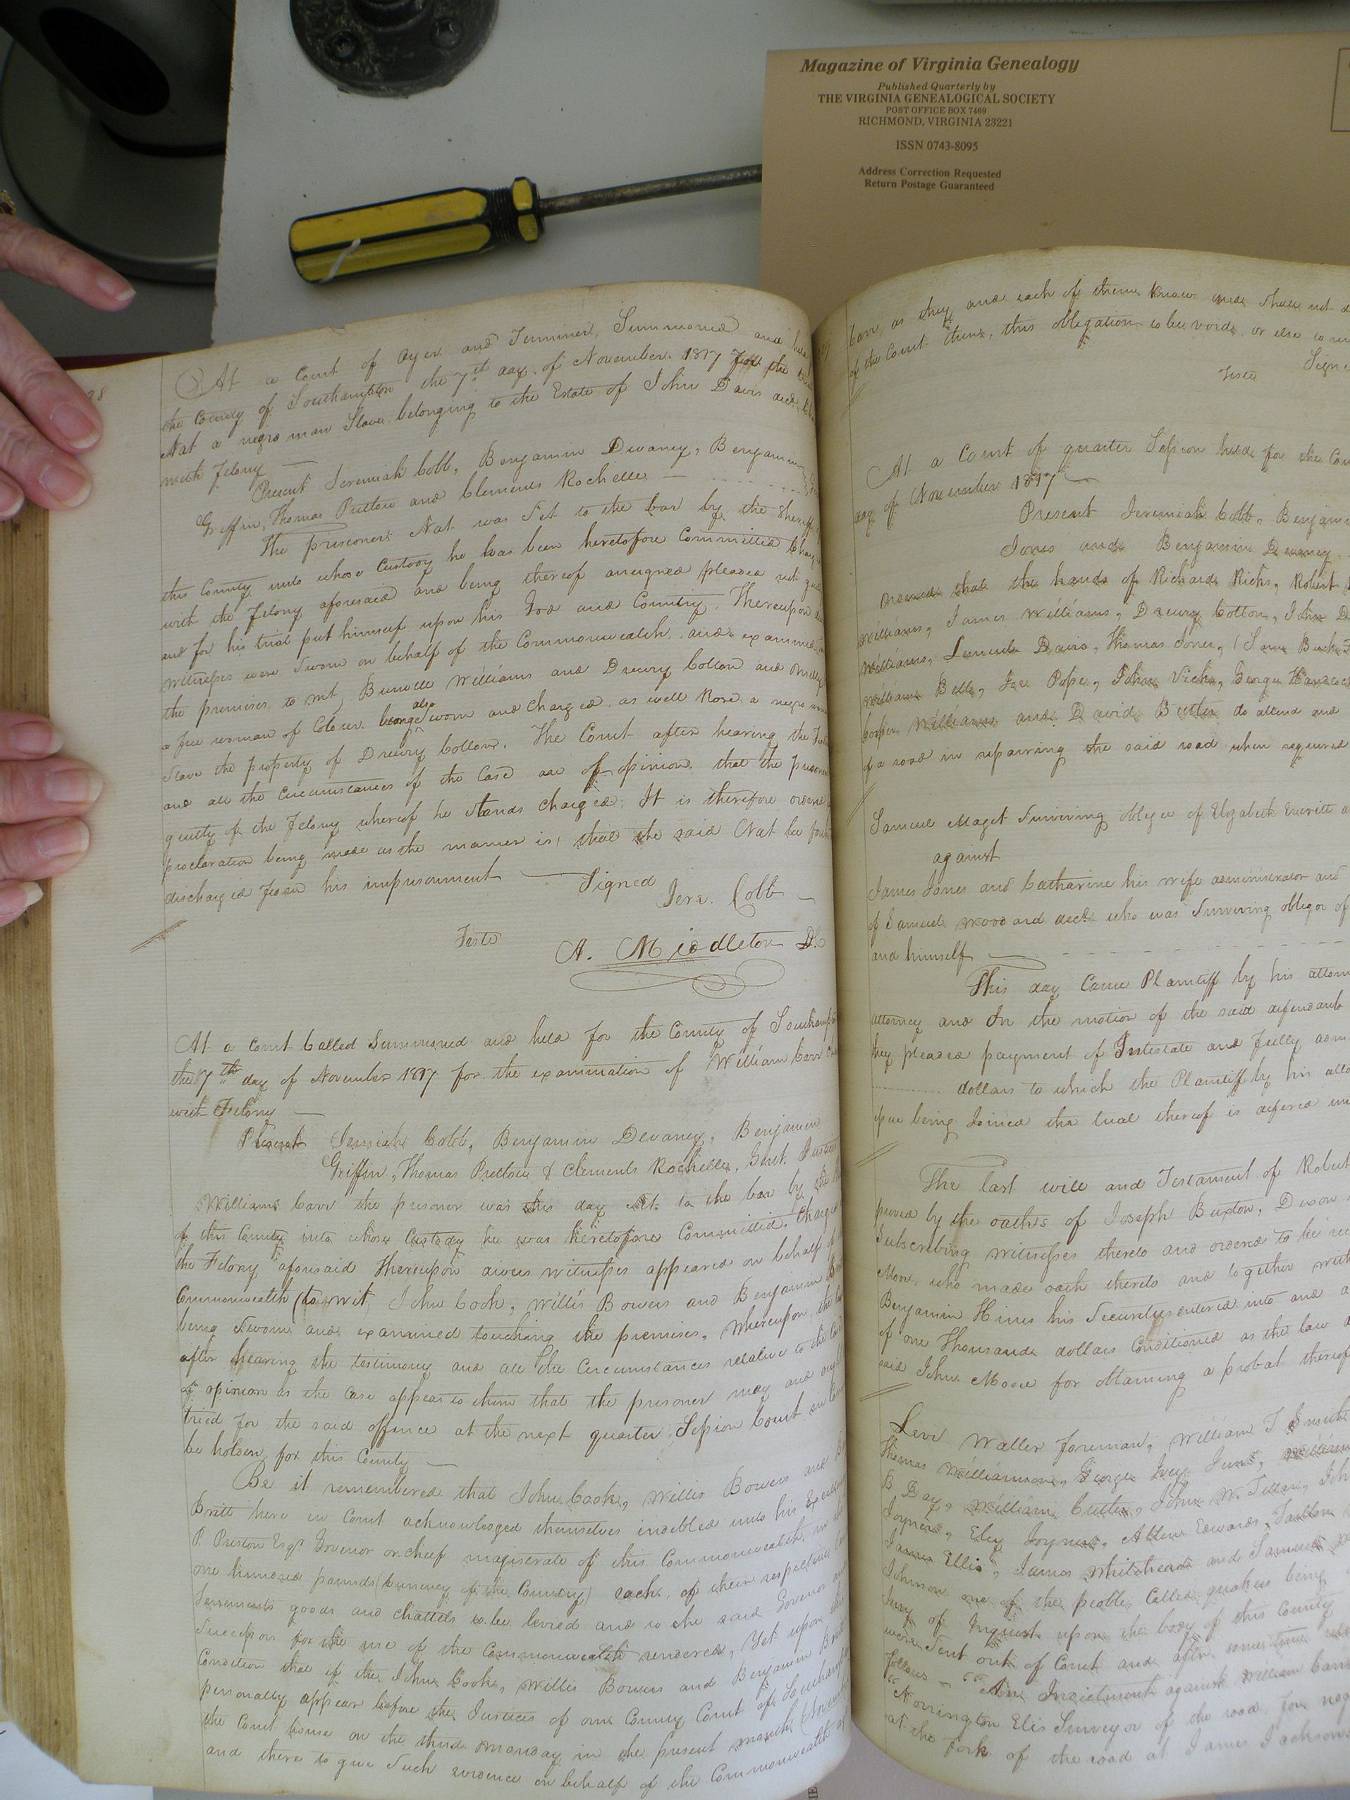 Magazine of Virginia Genealogy
Published Quarterly by
THE VIRGINIA GENEALOGICAL SOCIETY
POST OFFICE BOX 7469
RICHMOND, VIRGINIA 23221
ISSN 0743-8095
Address Correction Requested
Return Postage Guaranteed
At a Court of Oyer and Terminer, Summoned and
the County of Southampton the 7th day of November 1817 for the
Nat a negro man Slave belonging to the Estate of John Davis decd
with felony
Present Jeremiah Cobb, Benjamin Devaney, Benjamin
Griffin, Thomas Pretlow and Clements Rochelle
The prisoner Nat was Set to the bar by the Sheriff
this County into whose Custody he has been heretofore Committed
with the Felony aforesaid and being thereof arraigned pleaded not
and for his trial put himself upon his God and Country. Thereupon
witnesses were Sworn on behalf of the Commonwealth and examined
the premises to wit, Burwell Williams and Drewry Cotton and Milly
a free woman of Colour being also sworn and Charged, as well Rose a negro
Slave the property of Drewry Cotton. The Court after hearing the
and all the Circumstances of the Case are of opinion that the prisoner
guilty of the Felony whereof he Stands Charged. It is therefore
proclaration being made as the manner is, that the said Nat be
discharged from his imprisonment
Signed
Jere. Cobb
Teste
A. Middleton
At a Court Called Summoned and held for the County of
the 7th day of November 1817 for the examination of William Carr
with Felony
Present Jeremiah Cobb, Benjamin Devaney, Benjamin
Griffin, Thomas Pretlow & Clements Rochelle, Gent.
Williams Carr the prisoner was this day Set to the bar by the
of this County into whose Custody he was heretofore Committed,
the Felony aforesaid Thereupon divers witnesses appeared on behalf
Commonwealth (to wit John Cook, Willis Bowers and Benjamin
being Sworn and examined touching the premises, Whereupon the
after hearing the testimony and all the Circumstances relative to the
of opinion as the Case appears to them that the prisoner may and
tried for the said offence at the next quarter Session Court
be holden for this County
Be it remembered that John Cook, Willis Bowers and
Britt here in Court acknowledged themselves indebted unto his
P. Preston Esqr Govenor or cheif magistrate of this Commonwealth
one hundred pounds (Currency of the Country) each of their respective
Tenements goods and chattels to be levied and to the said Govenor
Successors for the use of the Commonwealth rendered, Yet upon
Condition that if the John Cook, Willis Bowers and Benjamin
personally appear before the Justices of our County Court of
the Court house on the third monday in the present month
and there to give Such evidence on behalf of the Commonwealth
have, as they and each of them know and shall not
of the Court then, this obligation to be void, or else to
Teste
At a Court of quarter Session held for the
day of November 1817
Present Jeremiah Cobb, Benjamin
Jones and Benjamin Devaney
that the hands of Richard Ricks, Robert
Williams, James Williams, Drewry Cotton, John
Williams, Lemuel Davis, Thomas Jones,
William Bell, Joe Pope, John Vick, George
Williams and David Butler do attend and
of a road in repairing the said road when required
Samuel Maget Surviving obligee of Elizabeth Everitt
against
James Jones and Catharine his wife administrator and
of Samuel Woodard decd who was Surviving obligor of
and himself
This day Came Plantiff by his
attorney and On the motion of the said defendants
they pleaded payment of Intestate and fully
dollars to which the Plantiff by his
being Joined the trial thereof is defered
The last will and Testament of Robert
proved by the oaths of Joseph Buxton,
Subscribing witnesses thereto and ordered to be
who made oath thereto and together with
Benjamin Hines his Securities entered into and
of one Thousand dollars Conditioned as the law
said John Moore for obtaining a probat thereof
Levi Waller foreman, William T.
Thomas Williamson, George Ivey
B Day, William Cutler, John W.
Joyner, Eley Joyner, Allen Edwards,
James Ellis, James Whitehead and Samuel
Johnson one of the people Called quakers being
Jury of Inquest upon the body of this County
were Sent out of Court and after some time
follows "An Indictment against William Carr
Norrington Elis Surveyor of the road, for
at the fork of the road at James Jacksons